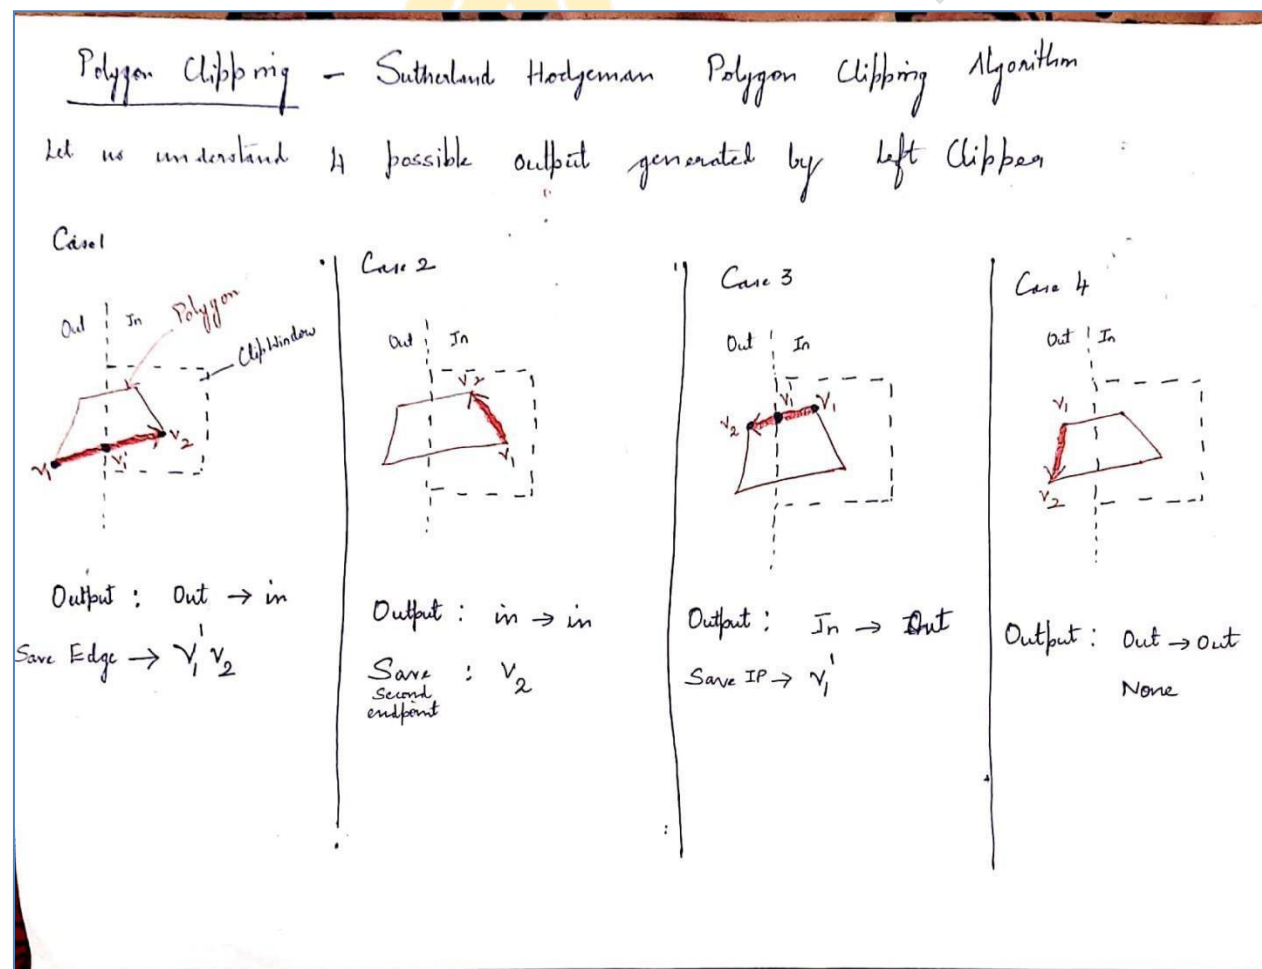 Polygon Clipping – Sutherland Hodgeman Polygon Clipping Algorithm
Let us understand 4 possible output generated by Left Clipper
Case1
Out In
Polygon
ClipWindow
V1 V1' V2
Output : Out → in
Save Edge → V1' V2
Case 2
Out In
V2
V1
Output : in → in
Save : V2
Second
endpoint
Case 3
Out In
V2 V1' V1
Output : In → Out
Save IP → V1'
Case 4
Out In
V1
V2
Output : Out → out
None